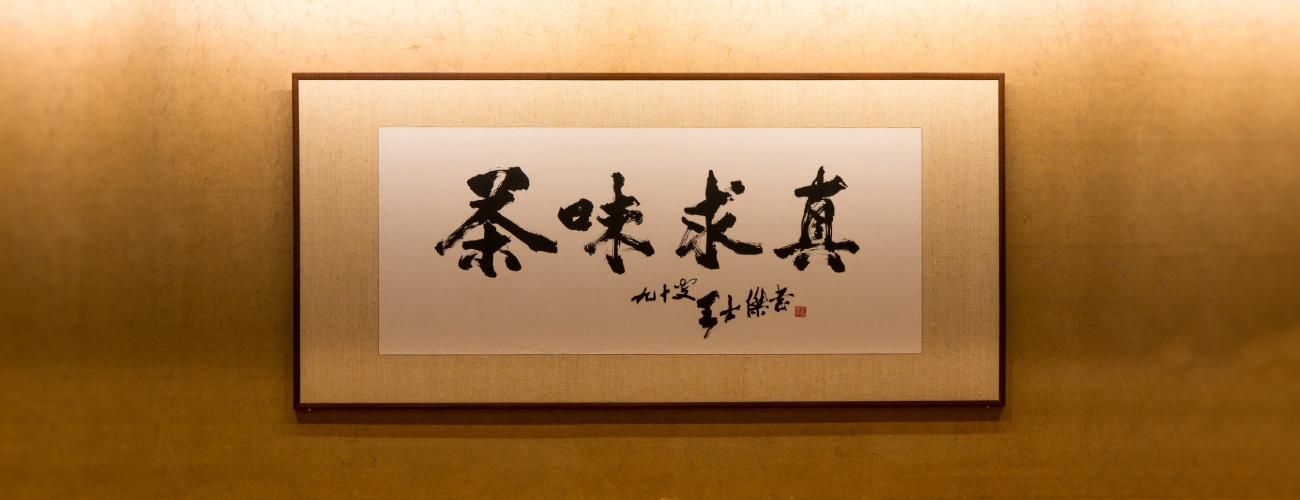 茶味求真
九十叟王士傑書